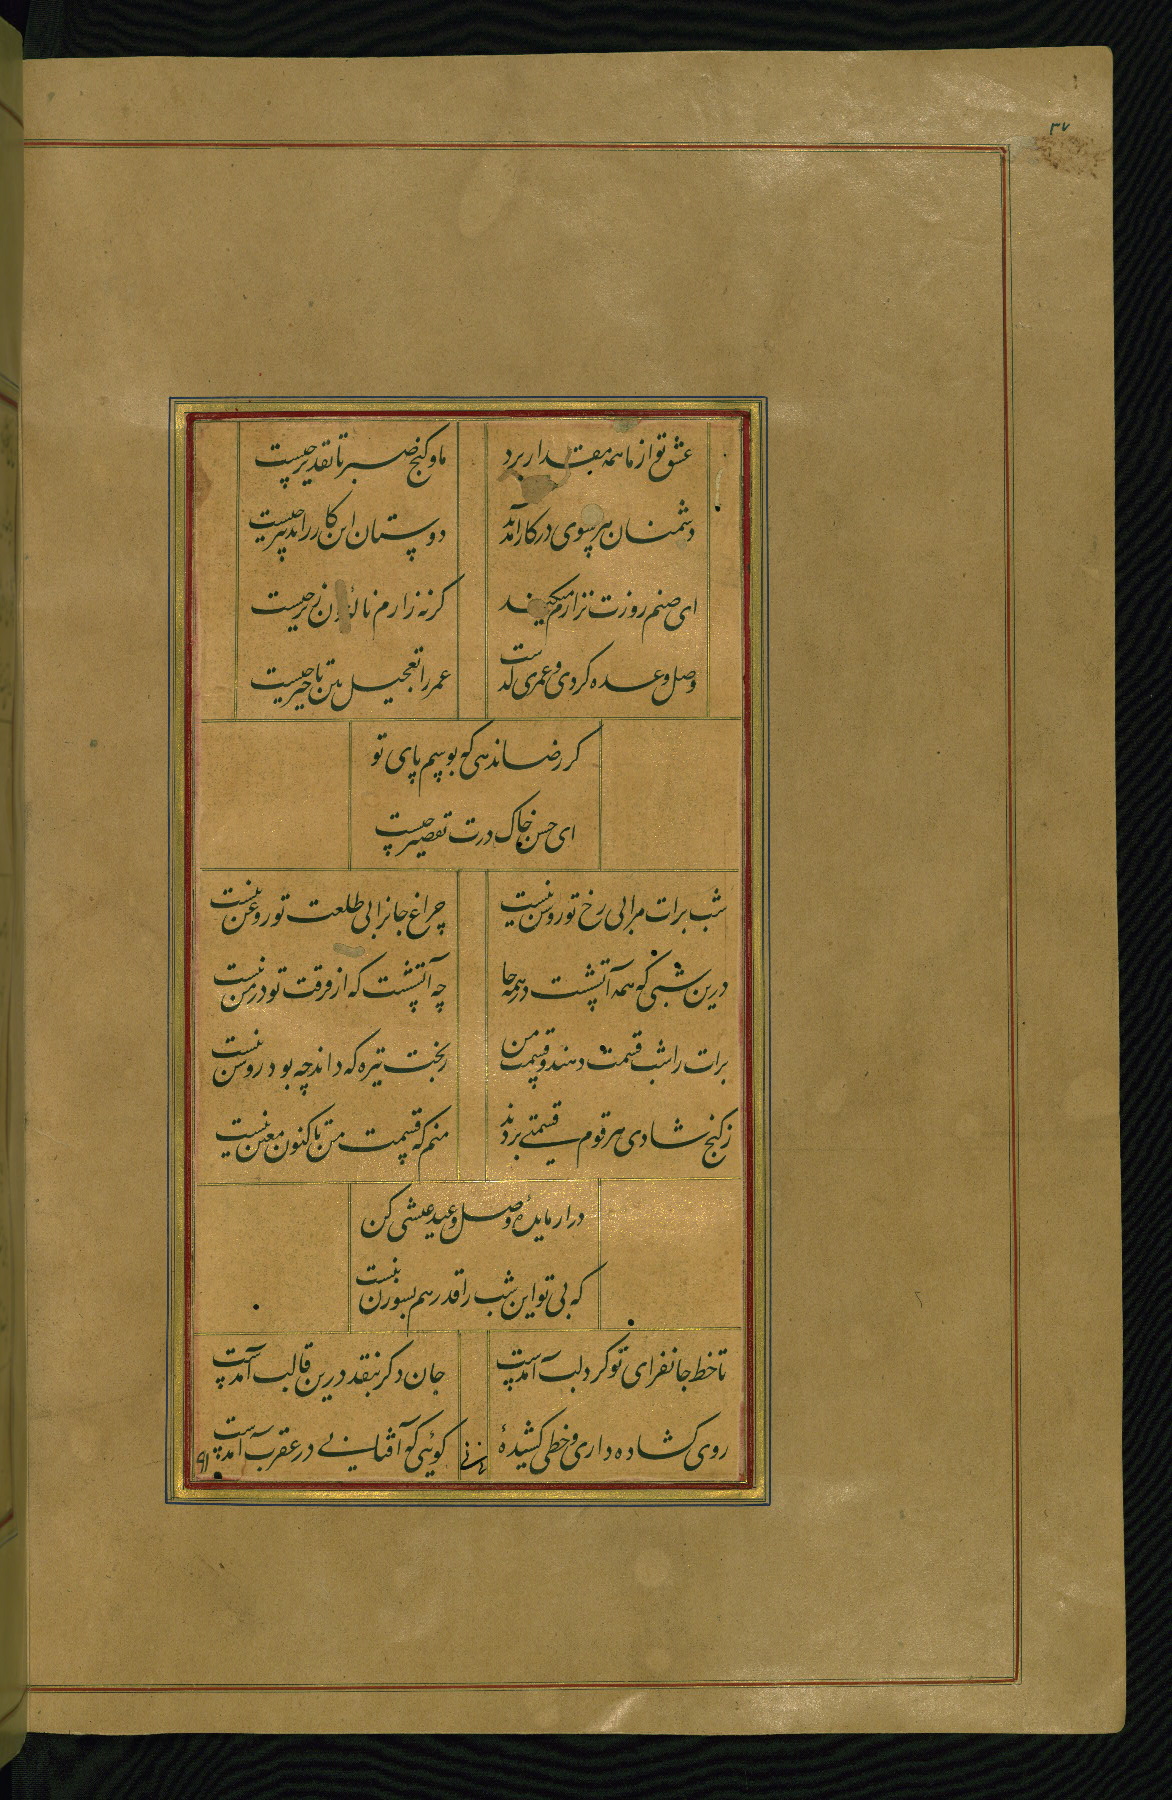 ۳۷
عشق تو از ما همه مقدار برد
ما و کنج صبر تا تقدیر چیست
دشمنان هر سوی در کار آمدند
دوستان این کار را تدبیر چیست
ای صنم روزت نزارم میکند
کر نه زارم ناله زیر چیست
وصل وعده کردی و عمری است
عمر را تعجیل بدین تاخیر چیست
کر رضا ندهی که بوسم پای تو
ای حسن خاک درت تقصیر چیست
شب برات مرا بی رخ تو روشن نیست
چراغ جانرا بی طلعت تو روغن نیست
درین شبی که همه آتشست در همه جا
چه آتشست که از فرقت تو در من نیست
برات را شب قسمت دهند و قسمت من
ز بخت تیره که داند چه بود روشن نیست
ز کنج شادی هر قوم قسمتی بردند
منم که قسمت من تا کنون معین نیست
درار مایدهٔ وصل و عید عیشی کن
که بی تو این شب را قدر هم بسوزن نیست
تا خط جانفزای تو کرد لب آمدست
جان دکر بنقد درین قالب آمدست
روی کشاده داری و خطی کشیدهٔ
کوئی که آفتابی در عقرب آمدست